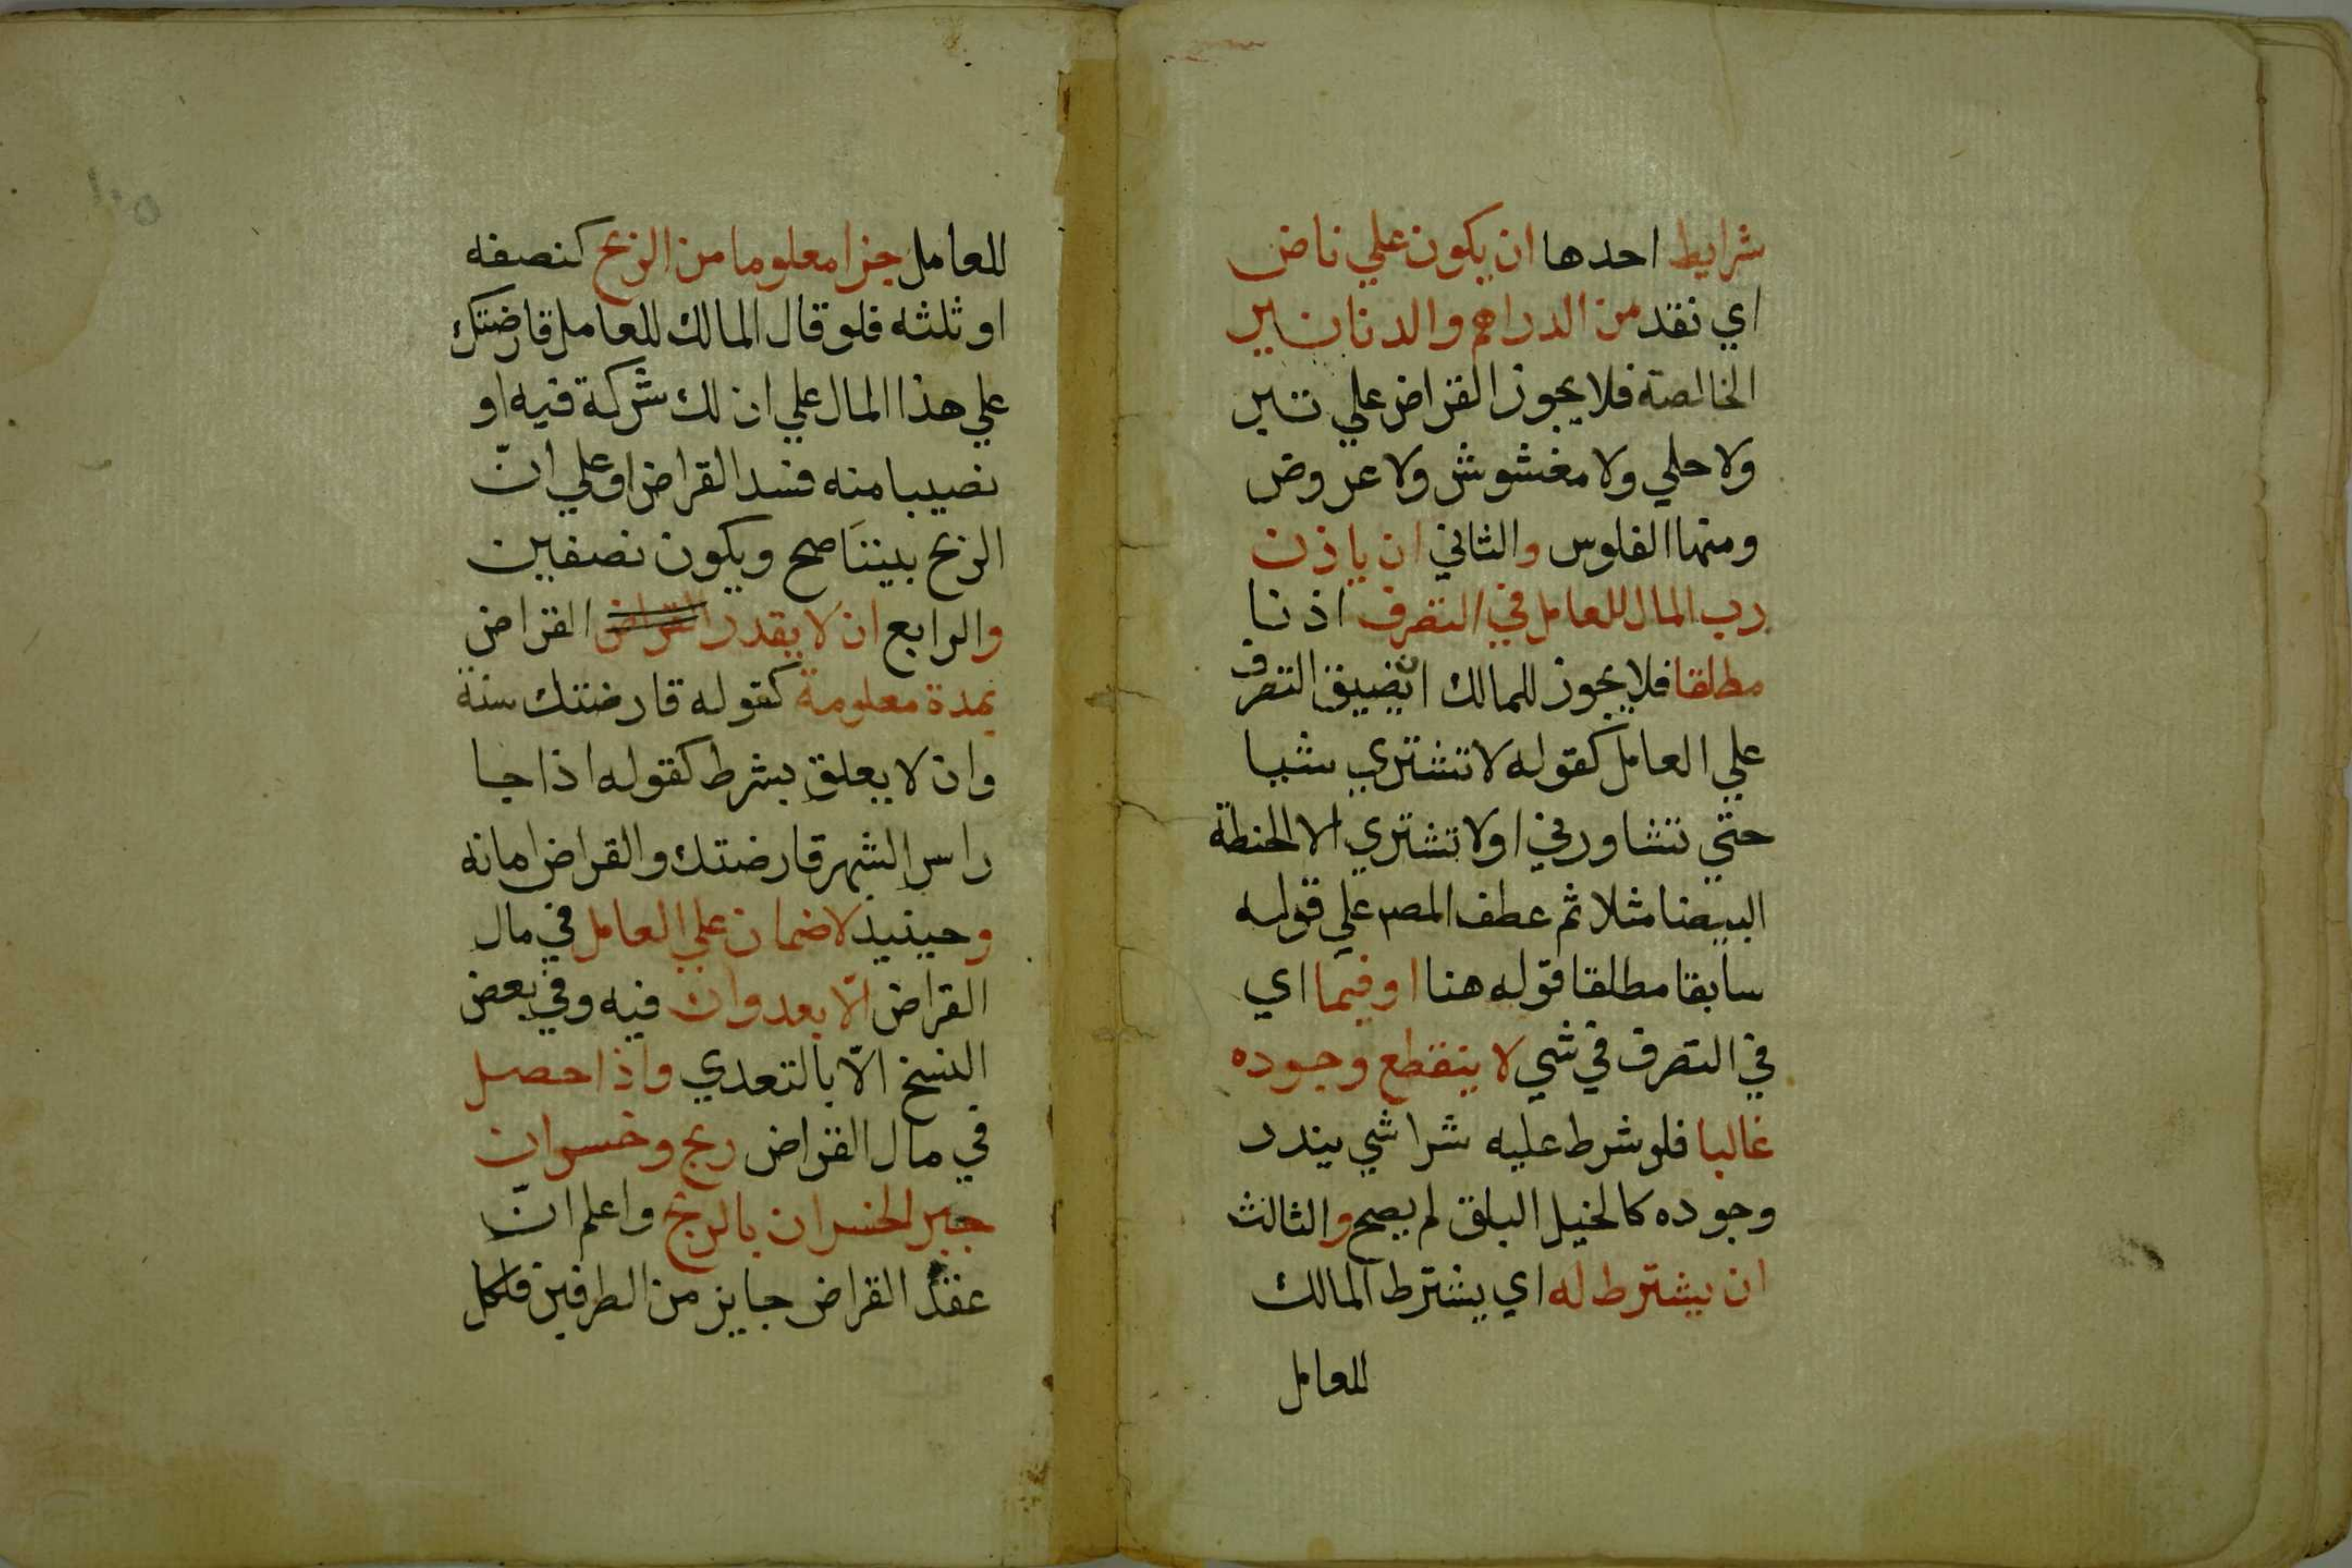 شرايط احدها ان يكون علي ناض
اي نقد من الدراهم والدنانير
الخالصة فلا يجوز القراض علي تبر
ولا حلي ولا مغشوش ولا عروض
ومنها الفلوس والثاني ان ياذن
رب المال للعامل في التصرف اذنا
مطلقا فلا يجوز للمالك ان يضيق التصرف
علي العامل كقوله لا تشتري شيا
حتي تشاورني او لا تشتري الا الحنطة
البيضا مثلا ثم عطف المص علي قوله
سابقا مطلقا قوله هنا او فيما اي
في التصرف في شي لا ينقطع وجوده
غالبا فلو شرط عليه شرا شي يندر
وجوده كالخيل البلق لم يصح والثالث
ان يشترط له اي يشترط المالك
للعامل
١٠٥
للعامل جزا معلوما من الربح كنصفه
او ثلثه فلو قال المالك للعامل قارضتك
علي هذا المال علي ان لك شركة فيه او
نصيبا منه فسد القراض او علي انّ
الربح بيننَا صح ويكون نصفين
والرابع ان لا يقدر القراض القراض
بمدة معلومة كقوله قارضتك سنة
وان لا يعلق بشرط كقوله اذا جا
راس الشهر قارضتك والقراض امانه
وحينيذ لا ضمان علي العامل في مال
القراض الّا بعدوان فيه وفي بعض
النسخ الّا بالتعدي واذا حصل
في مال القراض ربح وخسران
جبر الخسران بالربح واعلم انّ
عقد القراض جايز من الطرفين فلكل